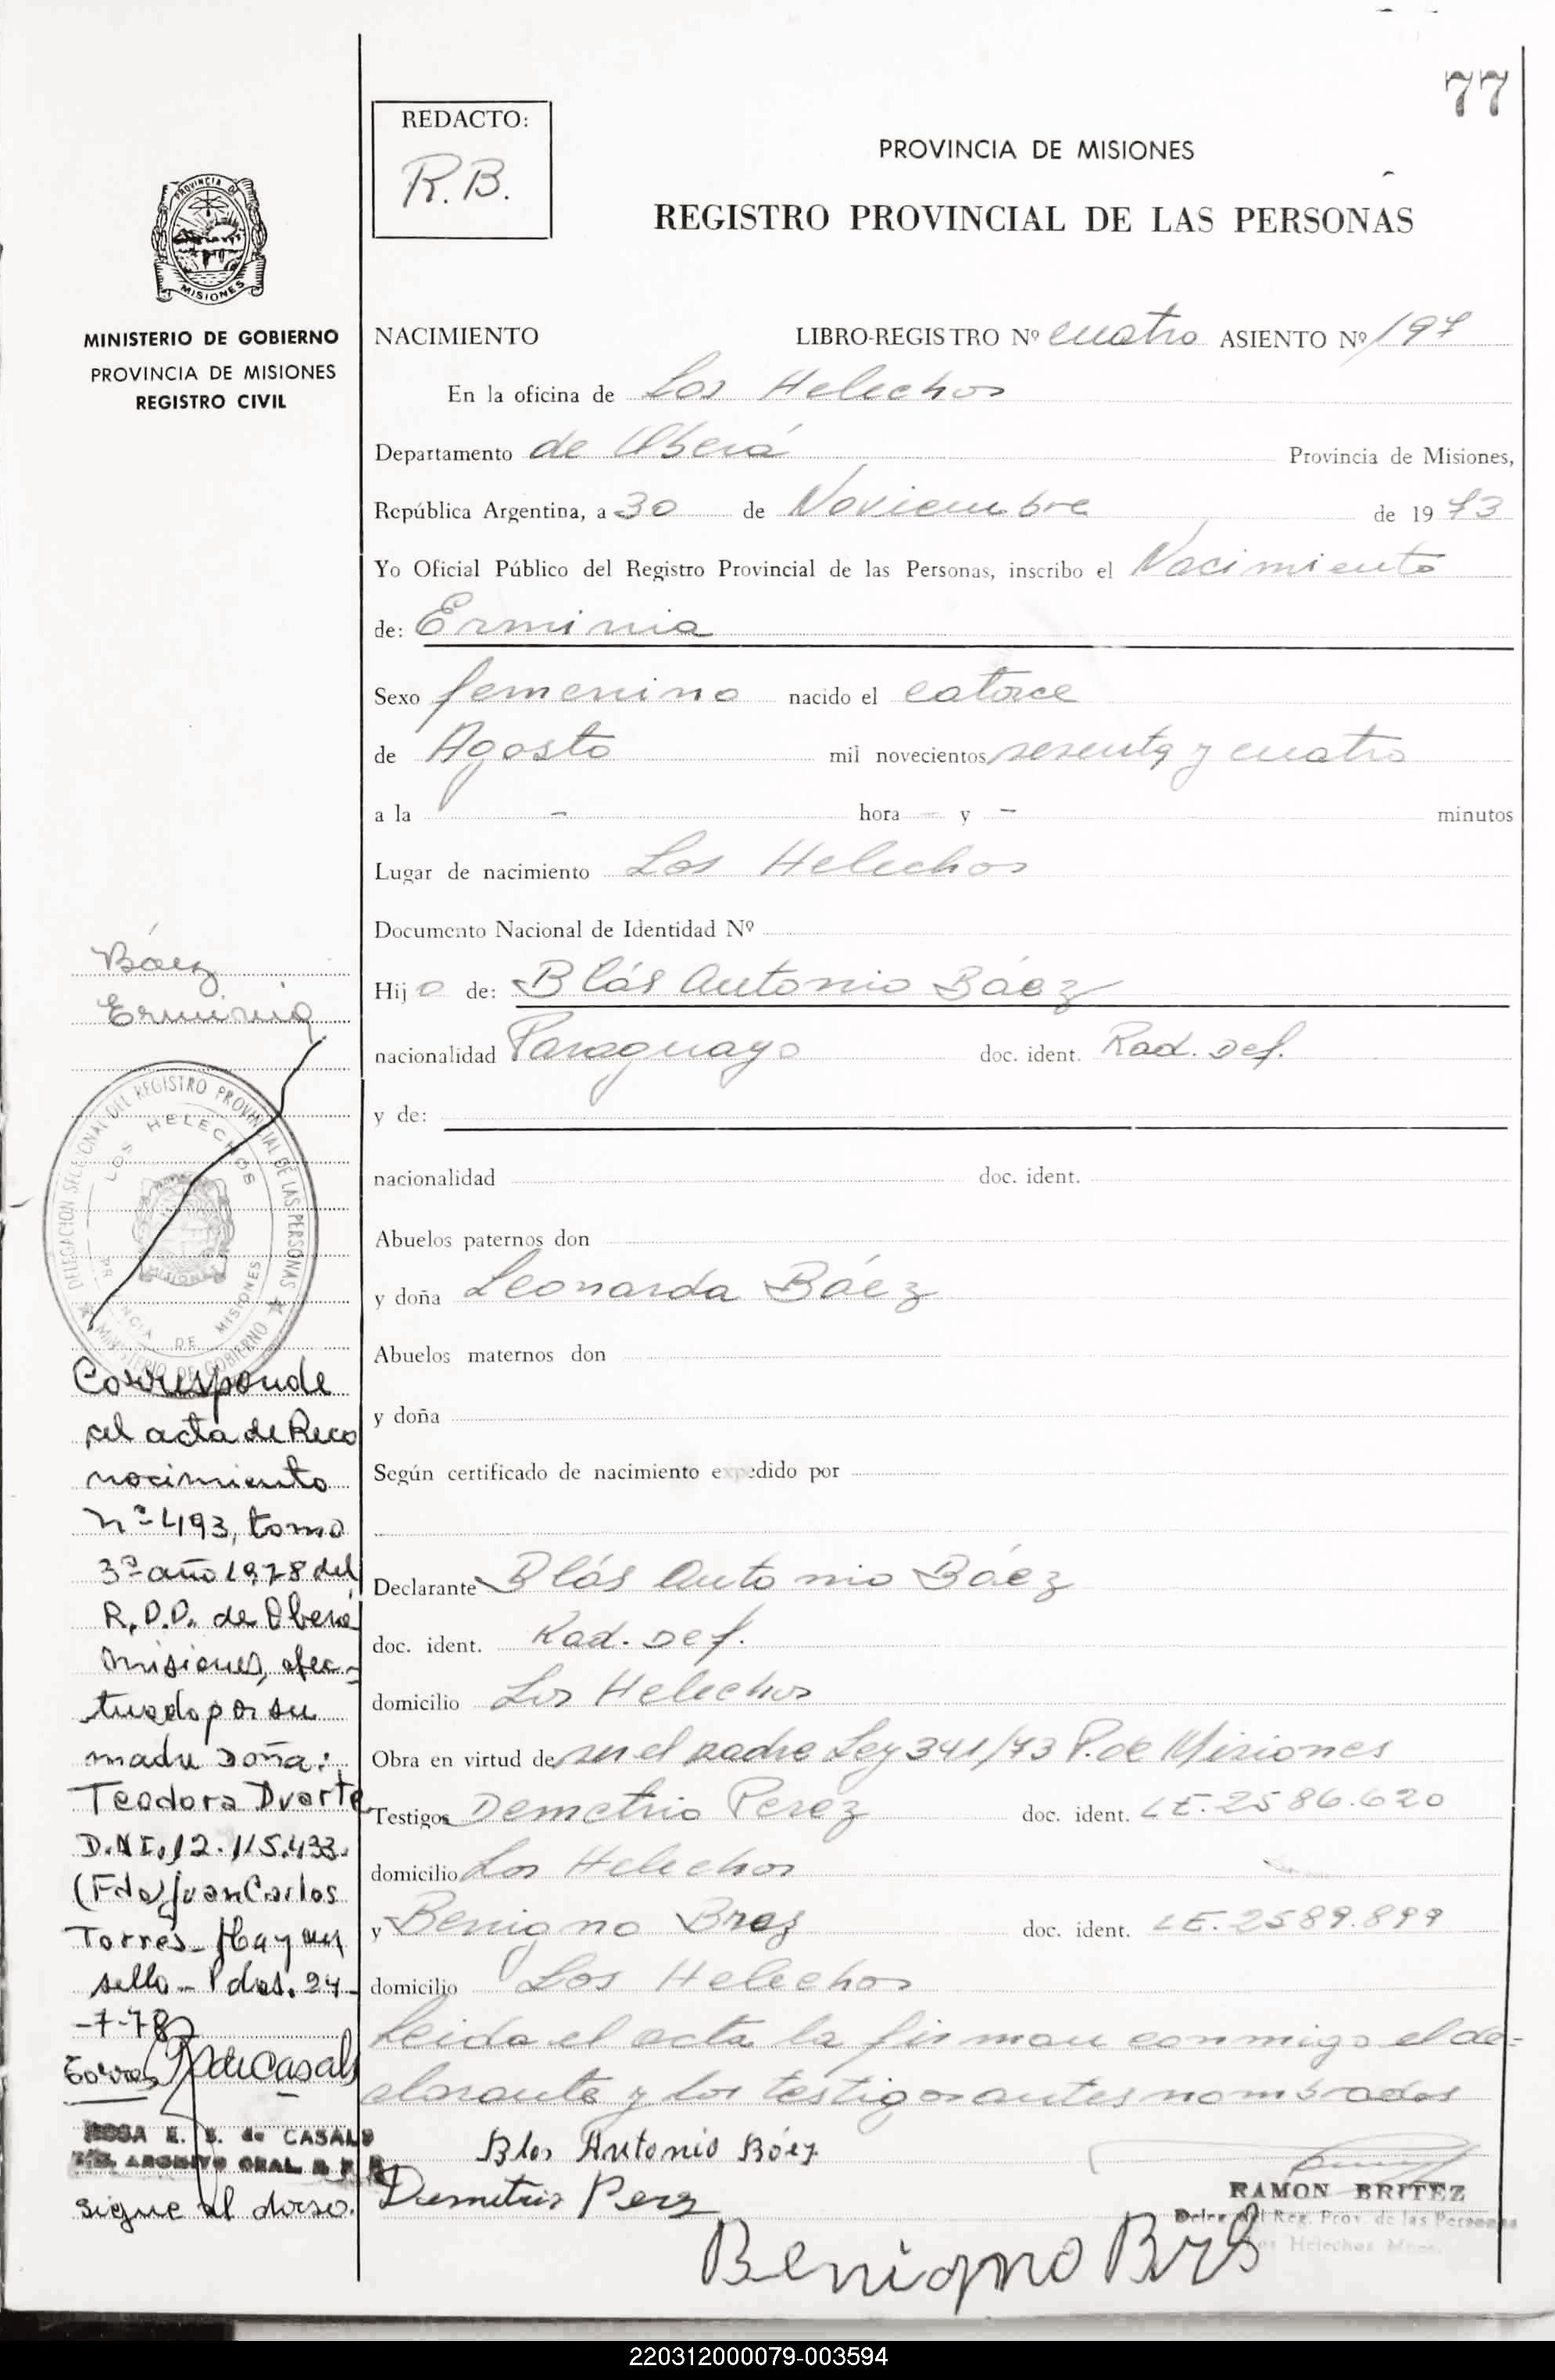 77
REDACTO:
R.B.
PROVINCIA DE MISIONES
REGISTRO PROVINCIAL DE LAS PERSONAS
PROVINCIA DE
MISIONES
MINISTERIO DE GOBIERNO
PROVINCIA DE MISIONES
REGISTRO CIVIL
NACIMIENTO LIBRO-REGISTRO Nº cuatro ASIENTO Nº 197
En la oficina de Los Helechos
Departamento de Oberá Provincia de Misiones,
República Argentina, a 30 de Noviembre de 19 73
Yo Oficial Público del Registro Provincial de las Personas, inscribo el Nacimiento
de: Erminia
Sexo femenino nacido el catorce
de Agosto mil novecientos sesenta y cuatro
a la - hora - y - minutos
Lugar de nacimiento Los Helechos
Documento Nacional de Identidad Nº
Hij o de: Blás Antonio Báez
nacionalidad Paraguayo doc. ident. Rad. Def.
y de:
nacionalidad doc. ident.
Abuelos paternos don
y doña Leonarda Báez
Abuelos maternos don
y doña
Según certificado de nacimiento expedido por
Declarante Blás Antonio Báez
doc. ident. Rad. Def.
domicilio Los Helechos
Obra en virtud de ser el padre Ley 341/73 P. de Misiones
Testigos Demetrio Perez doc. ident. LE. 2586.620
domicilio Los Helechos
y Benigno Bres doc. ident. LE. 2589.899
domicilio Los Helechos
Leida el acta la firman conmigo el de-
clarante y los testigos antes nombrados
Blas Antonio Báez
Demetrio Perez
Benigno Brs
RAMON BRITEZ
Deleg. del Reg. Prov. de las Personas
Los Helechos Mnes.
Báez
Erminia
DELEGACION SECCIONAL DEL REGISTRO PROVINCIAL DE LAS PERSONAS
MINISTERIO DE GOBIERNO
LOS HELECHOS
PROVINCIA DE MISIONES
Corresponde
al acta de Reco
nocimiento
Nº 493, tomo
3º año 1978 del
R.P.P. de Oberá
Misiones, efec-
tuado por su
madre Doña:
Teodora Duarte
D.N.I. 12.115.433.
(Fdo) Juan Carlos
Torres - Hay un
sello - Pdas. 24-
-7-78
ROSA E. B. de CASALS
ARCHIVO GRAL R P P
sigue al dorso.
220312000079-003594